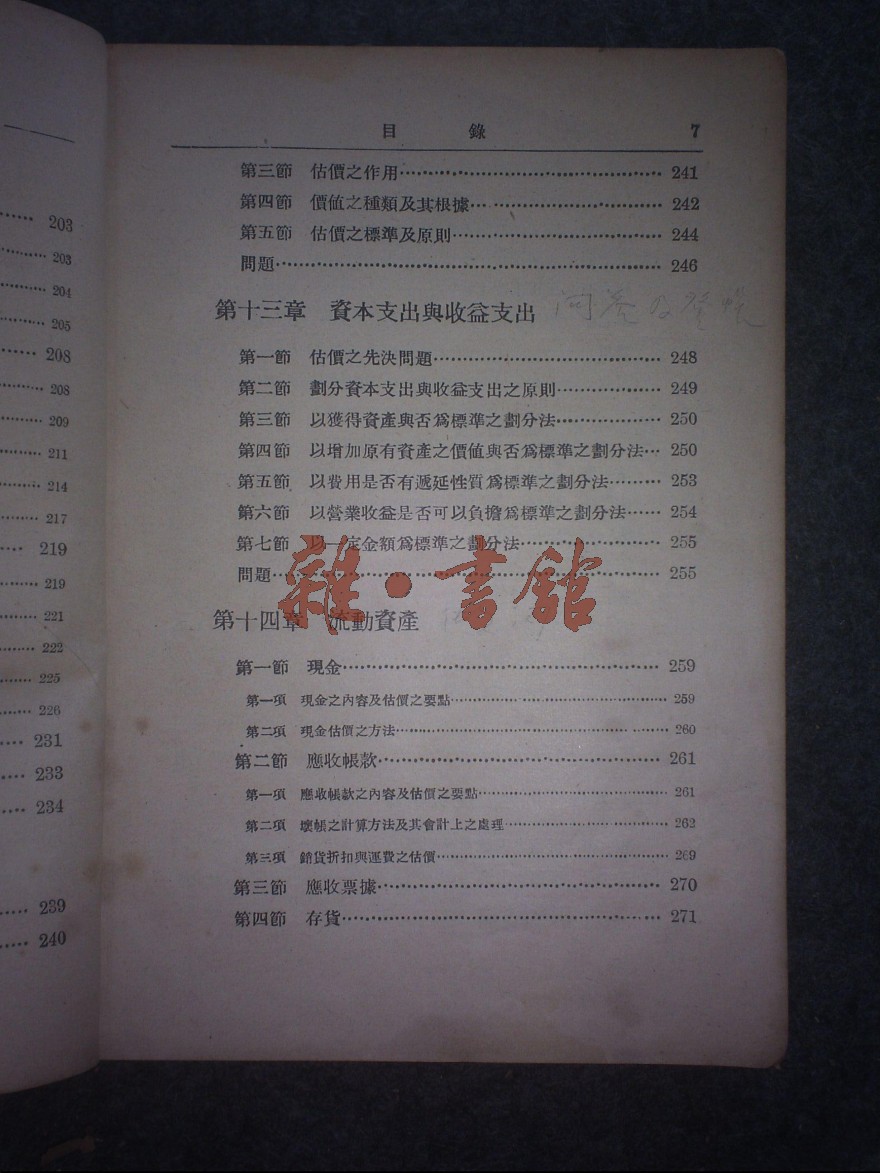 203
203
204
205
208
208
209
211
214
217
219
219
221
222
225
226
231
233
234
239
240
目錄 7
第三節 估價之作用 241
第四節 價值之種類及其根據 242
第五節 估價之標準及原則 244
問題 246
第十三章 資本支出與收益支出
第一節 估價之先決問題 248
第二節 劃分資本支出與收益支出之原則 249
第三節 以獲得資產與否爲標準之劃分法 250
第四節 以增加原有資產之價值與否爲標準之劃分法 250
第五節 以費用是否有遞延性質爲標準之劃分法 253
第六節 以營業收益是否可以負擔爲標準之劃分法 254
第七節 以一定金額爲標準之劃分法 255
問題 255
雜·書館
第十四章 流動資產
第一節 現金 259
第一項 現金之內容及估價之要點 259
第二項 現金估價之方法 260
第二節 應收帳款 261
第一項 應收帳款之內容及估價之要點 261
第二項 壞帳之計算方法及其會計上之處理 262
第三項 銷貨折扣與運費之估價 269
第三節 應收票據 270
第四節 存貨 271